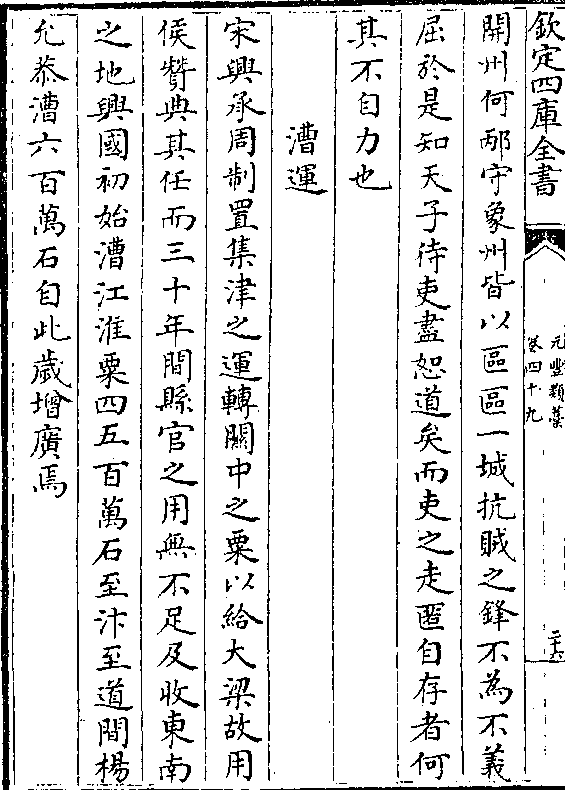 欽定四庫全書
元豐類藁
卷四十九
二十六
開州何邴守象州皆以區區一城抗賊之鋒不為不義
屈於是知天子待吏盡恕道矣而吏之走匿自存者何
其不自力也
漕運
宋興承周制置集津之運轉關中之粟以給大梁故用
侯贇典其任而三十年間縣官之用無不足及收東南
之地興國初始漕江淮粟四五百萬石至汴至道間楊
允恭漕六百萬石自此歲增廣焉